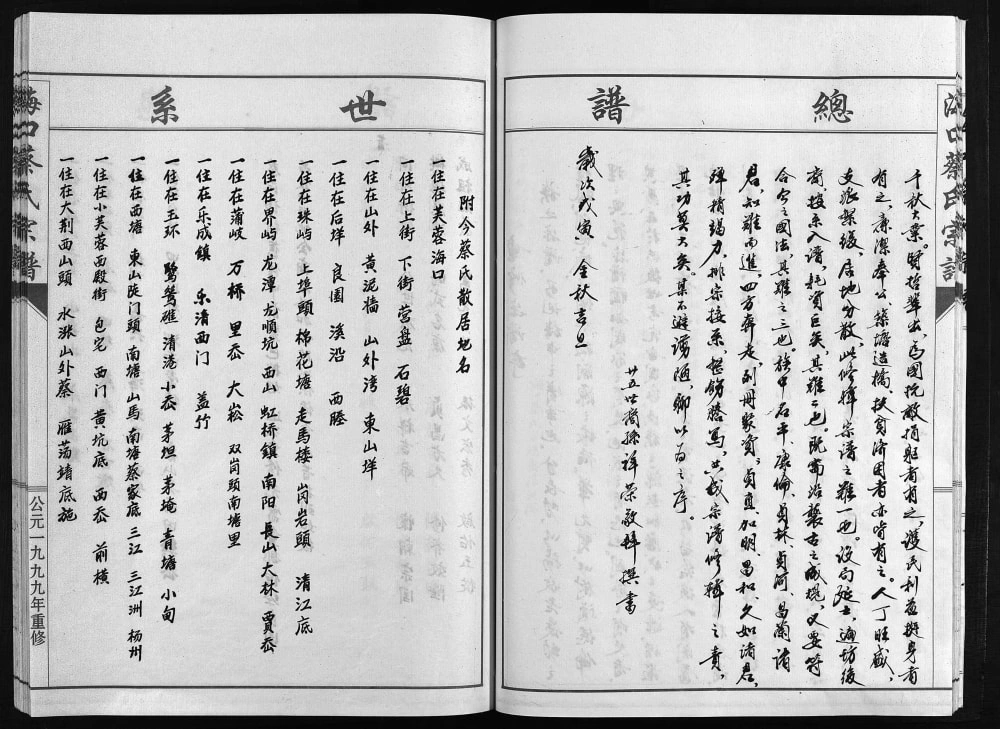 總譜
千秋大業。賢哲輩出,為國抗敵捐軀者有之,護民利益挺身者
有之,廉潔奉公築塘造橋,扶貧濟困者亦皆有之。人丁旺盛,
支派繁緩,居地分散,此修輯宗譜之難一也。設局延士,遍坊後
裔,接系入譜,耗資巨矣,其難二也。既需沿襲古之成規,又要符
合今之國法,其難之三也。族中石平、康倫、貞林、貞河、昌蘭諸
君,知難而進,四方奔走,刻冊聚資,貞真、加明、昌和、久如諸君,
殫精竭力,排宗接系,謄寫,共成宗譜修輯之責,
其功莫大矣。某不避谫陋,聊以為之序。
廿五世裔孫祥榮敬輯撰書
歲次戊寅金秋吉旦
海口蔡氏宗譜
世系
附今蔡氏散居地名
一住在芙蓉海口
一住在上街 下街 营盘 石碧
一住在山外 黄泥墙 山外湾 東山垟
一住在后垟 良園 溪沿 西塍
一住在珠屿 上埠頭 棉花塘 走馬楼 岗岩頭 清江底
一住在界屿 龙潭 龙順坑 西山 虹桥鎮 南阳 長山 大林 賈岙
一住在蒲岐 万桥 里岙 大崧 双岗頭南塘里
一住在乐成鎮 乐清西门 盖竹
一住在玉环 鹭鸶礁 清港 小岙 茅坦 茅埯 青塘 小甸
一住在西塘 東山陡门頭 南塘 山馬 南塘蔡家底 三江 三江洲 杨州
一住在小芙蓉西殿街 包宅 西门 黄坑底 西岙 前横
一住在大荆西山頭 水涨 山外蔡 雁荡靖底施
海口蔡氏宗譜
公元一九九九年重修